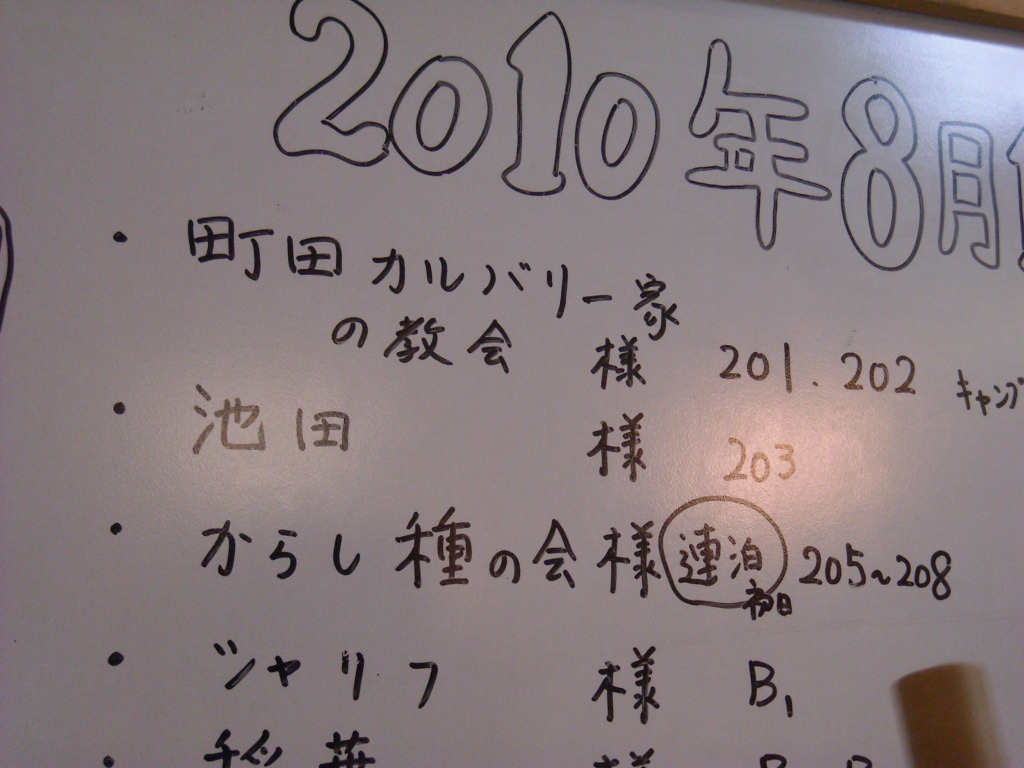 2010年8月
・町田カルバリー家
の教会 様 201.202 キャンプ
・池田 様 203
・からし種の会様 連泊 205~208
初日
・シャリフ 様 B1
・ 様